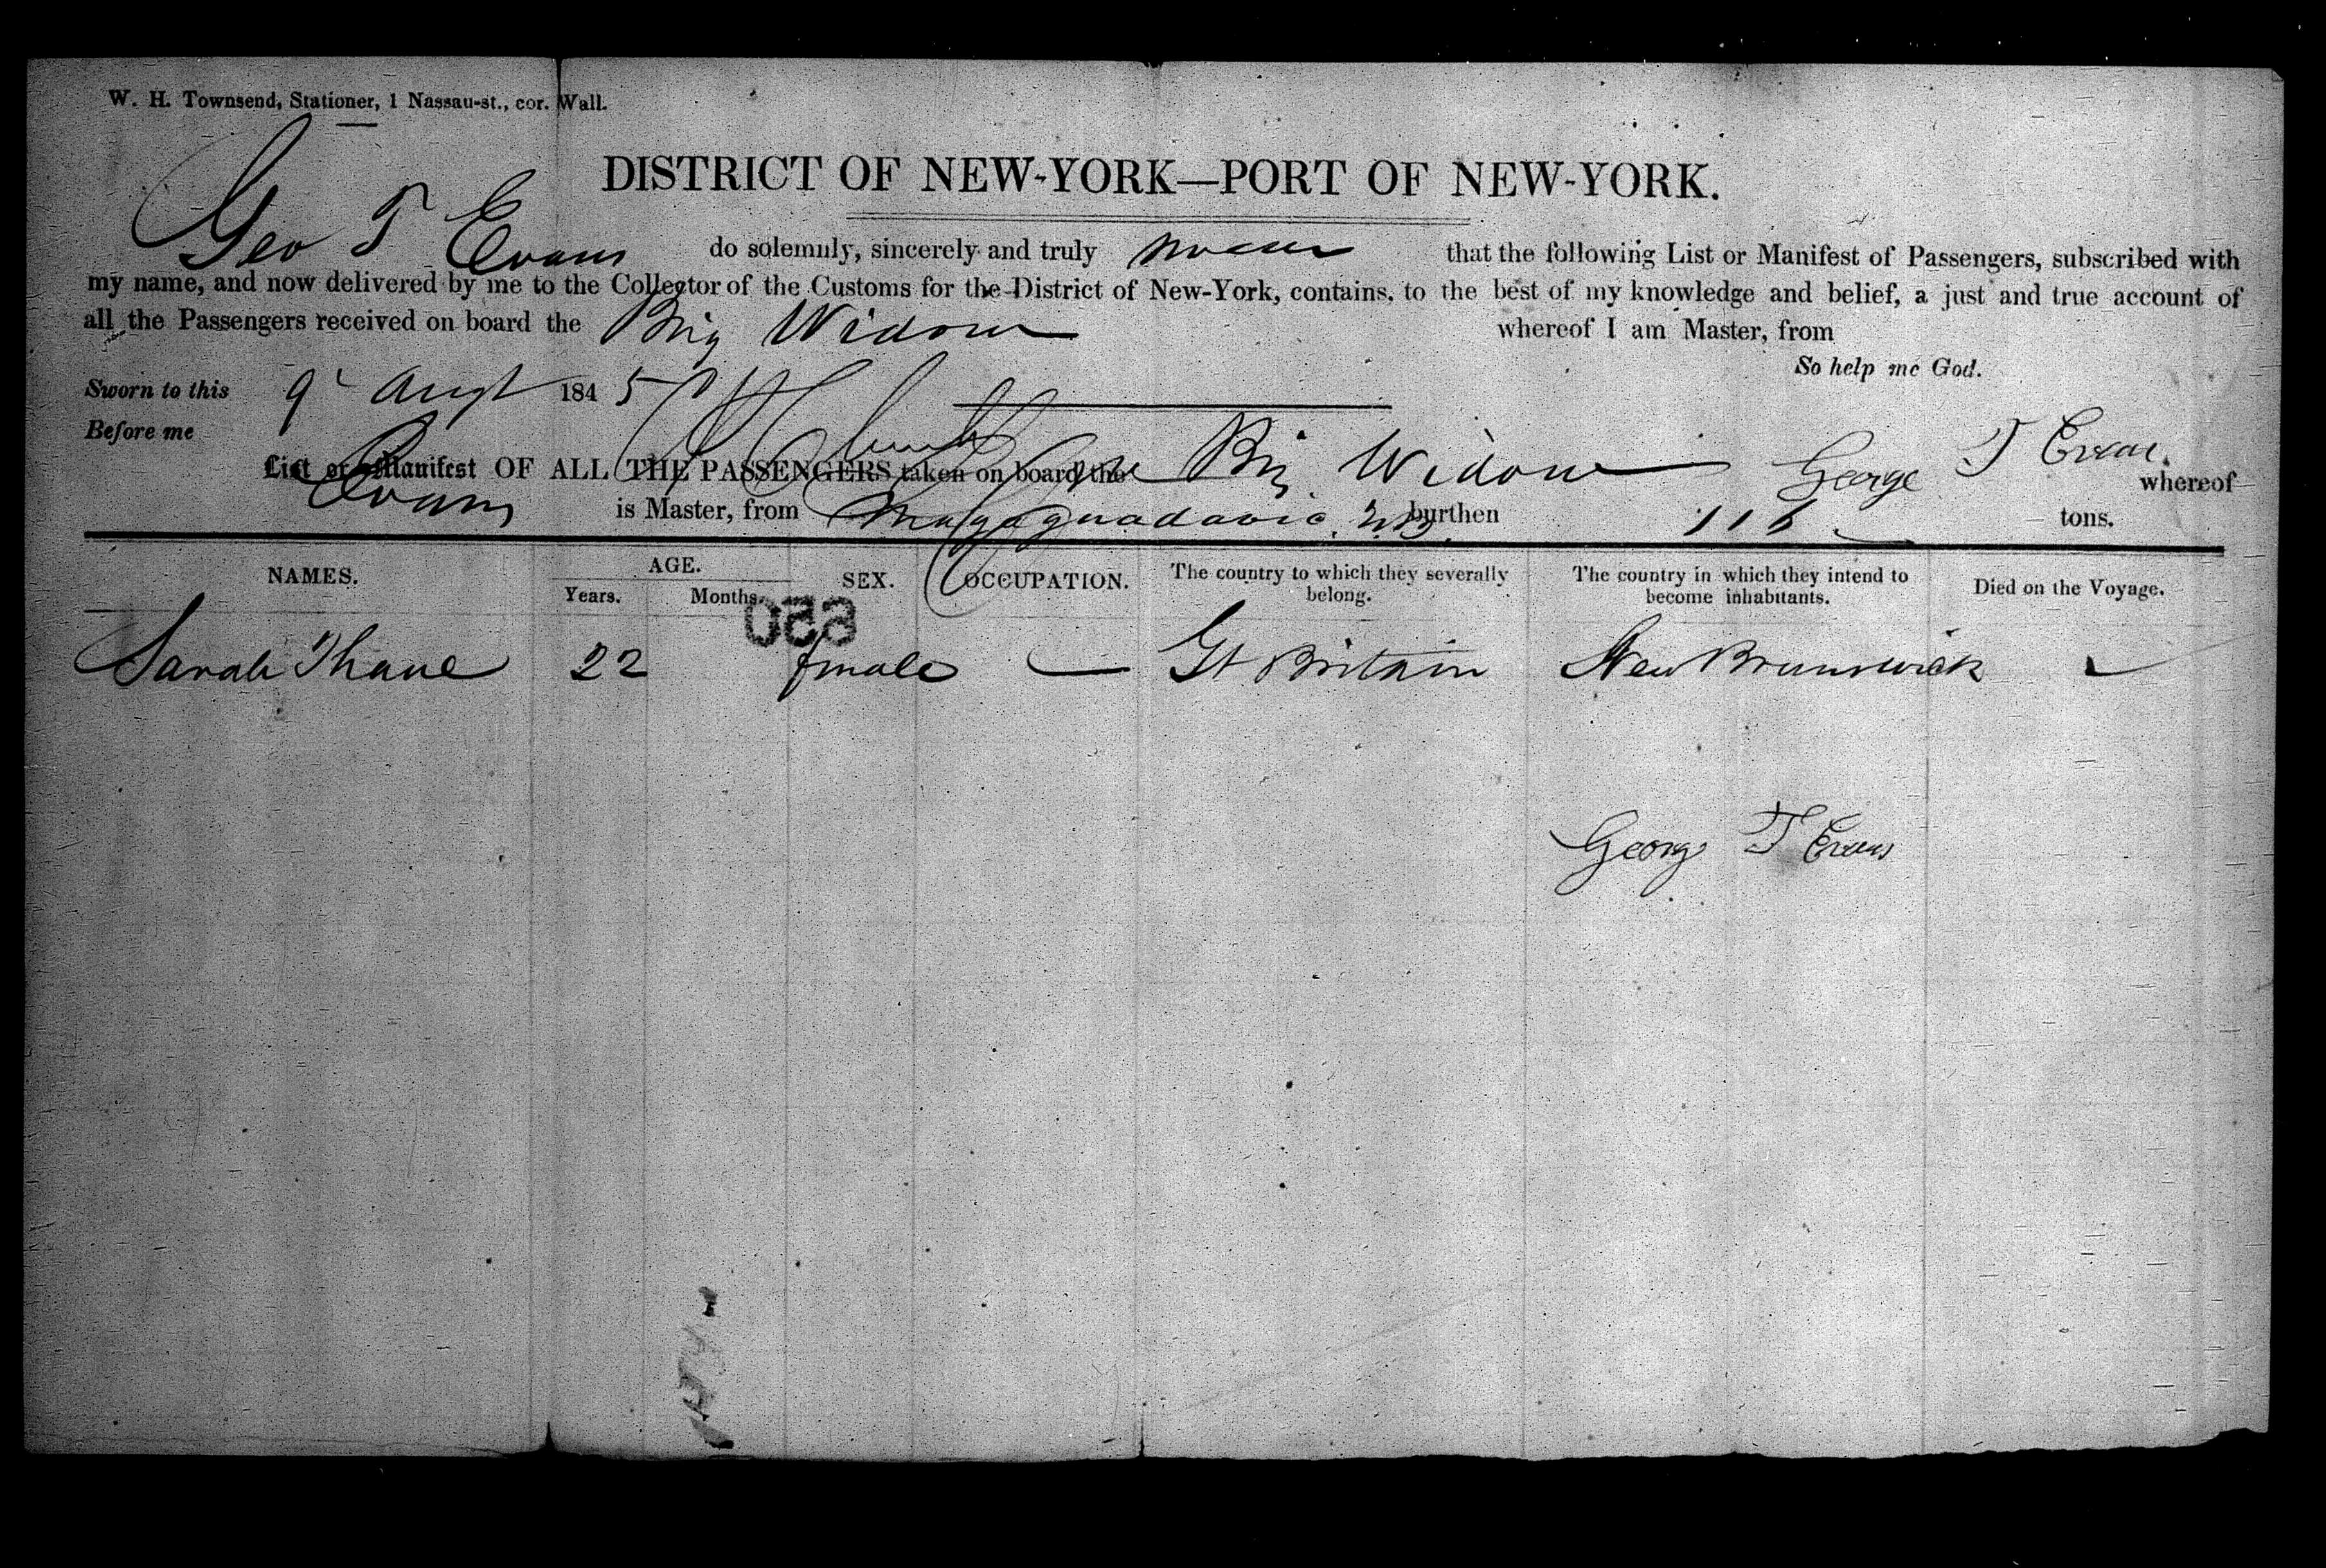 W. H. Townsend, Stationer, 1 Nassau-st., cor. Wall.
DISTRICT OF NEW-YORK—PORT OF NEW-YORK.
Geo T Evans do solemnly, sincerely and truly swear that the following List or Manifest of Passengers, subscribed with
my name, and now delivered by me to the Collector of the Customs for the District of New-York, contains, to the best of my knowledge and belief, a just and true account of
all the Passengers received on board the Brig Widow whereof I am Master, from
So help me God.
Sworn to this 9 Augt 1845
Before me
List or Manifest OF ALL THE PASSENGERS taken on board the Brig Widow George T Evans whereof
Evans is Master, from Magaguadavic, N.B. burthen tons.
NAMES. AGE. SEX. OCCUPATION. The country to which they severally belong. The country in which they intend to become inhabitants. Died on the Voyage.
Years. Months.
550
Sarah Thane 22 fmale — Gt Britain New Brunswick
George T Evans